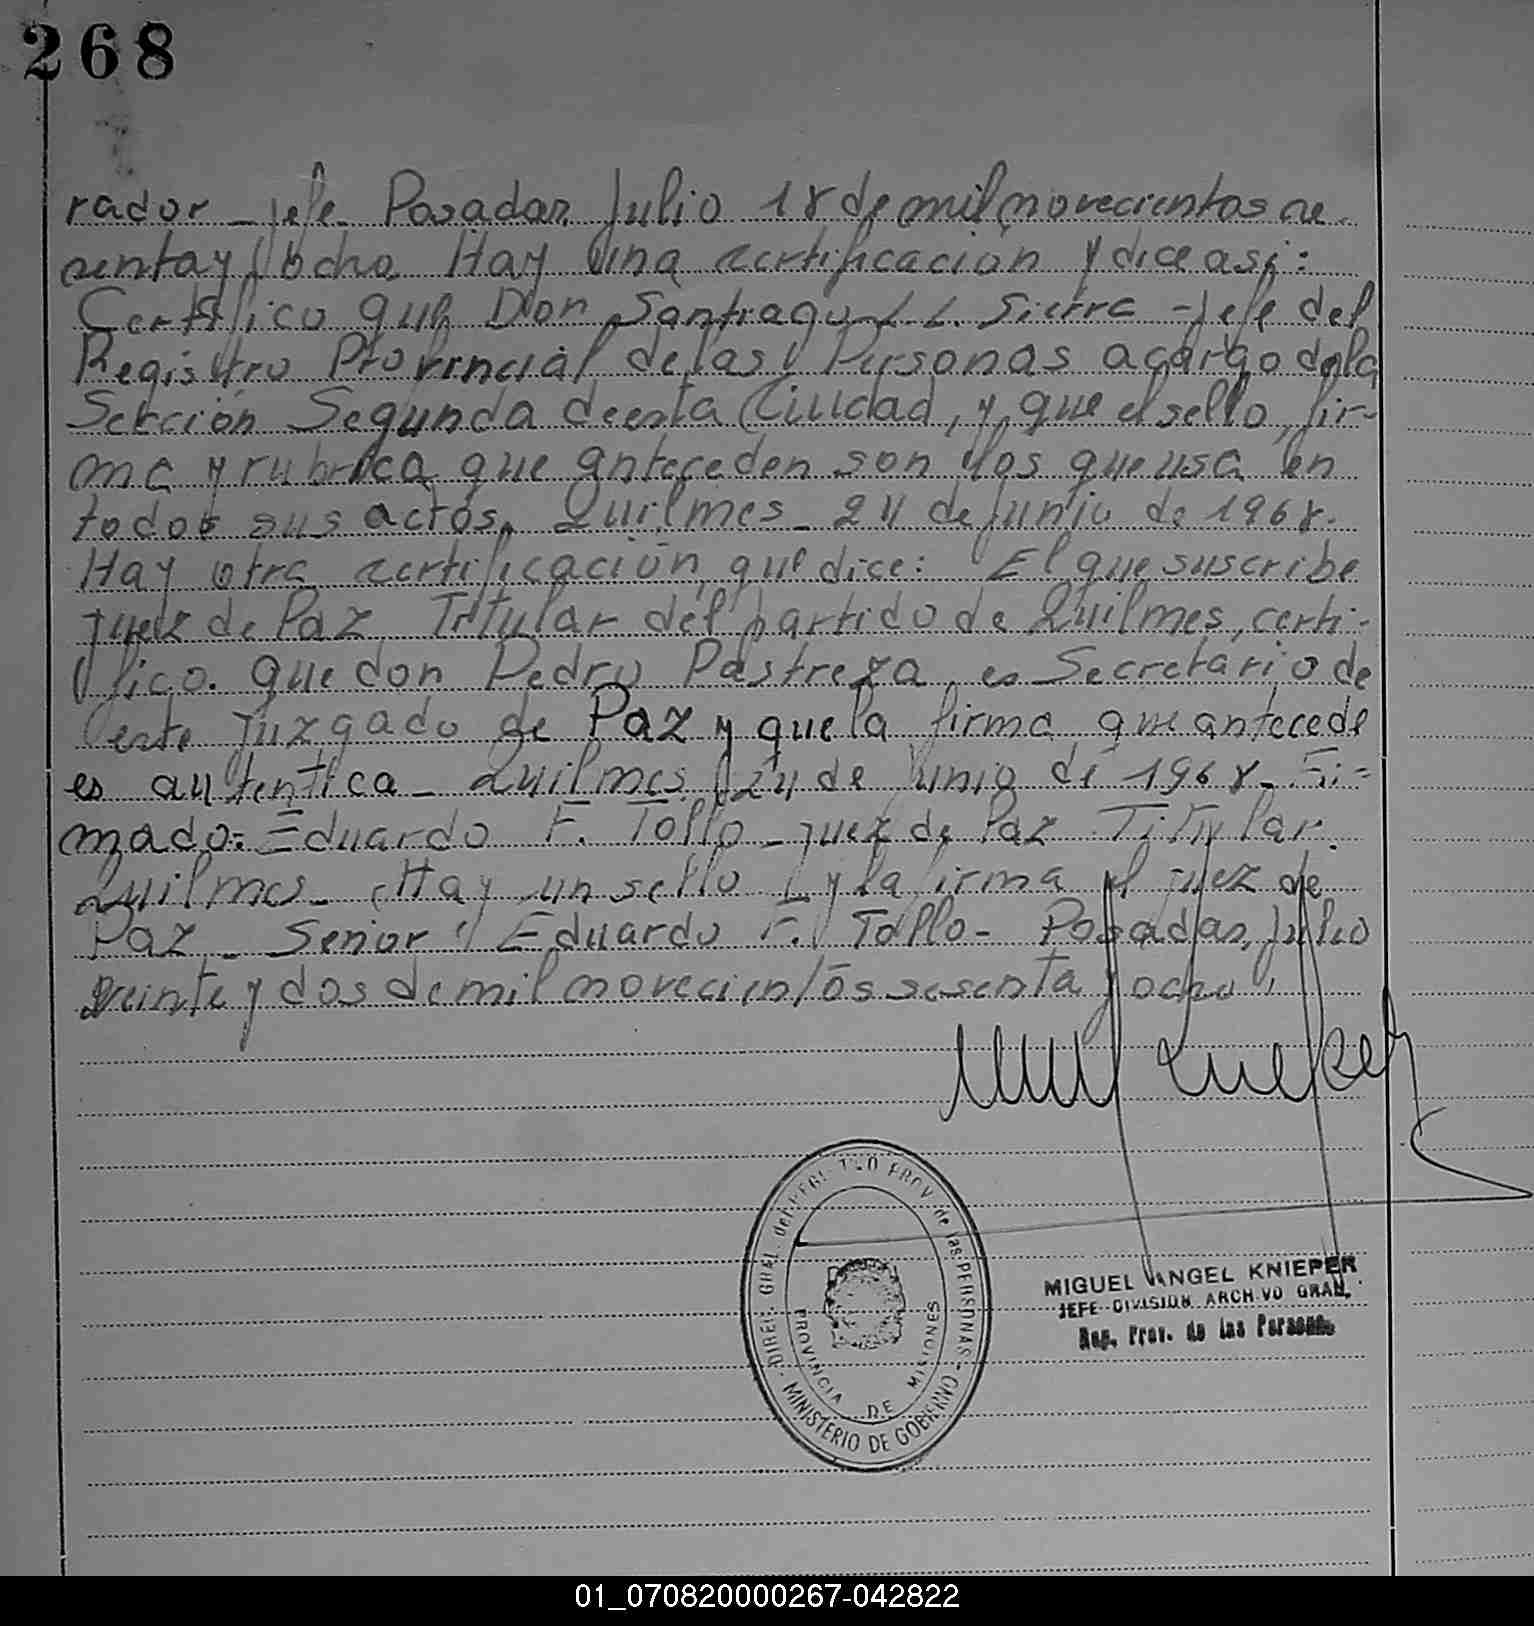 268
rador - jefe. Posadas, Julio 18 de mil novecientos se
senta y ocho Hay una certificación y dice así:
Certifico que Don Santiago L. L. Sierra - Jefe del
Registro Provincial de las Personas a cargo de la
Sección Segunda de esta Ciudad, y que el sello, fir-
ma y rubrica que anteceden son los que usa en
todos sus actos. Quilmes - 24 de junio de 1968.
Hay otra certificación que dice: El que suscribe
juez de Paz Titular del partido de Quilmes, certi-
fico. que don Pedro es Secretario de
este juzgado de Paz y que la firma que antecede
es autentica - Quilmes 24 de junio de 1968 - Fir-
mado: Eduardo F. Tollo - juez de Paz Titular.
Quilmes - Hay un sello y la firma el juez de
Paz - Señor Eduardo F. Tollo - Posadas, Julio
veinte y dos de mil novecientos sesenta y ocho
DIREC. GRAL. del REGISTRO PROV. de las PERSONAS
MINISTERIO DE GOBIERNO
PROVINCIA DE MISIONES
MIGUEL ANGEL KNIEPER
JEFE DIVISION ARCHIVO GRAL.
Reg. Prov. de las Personas
01_070820000267-042822